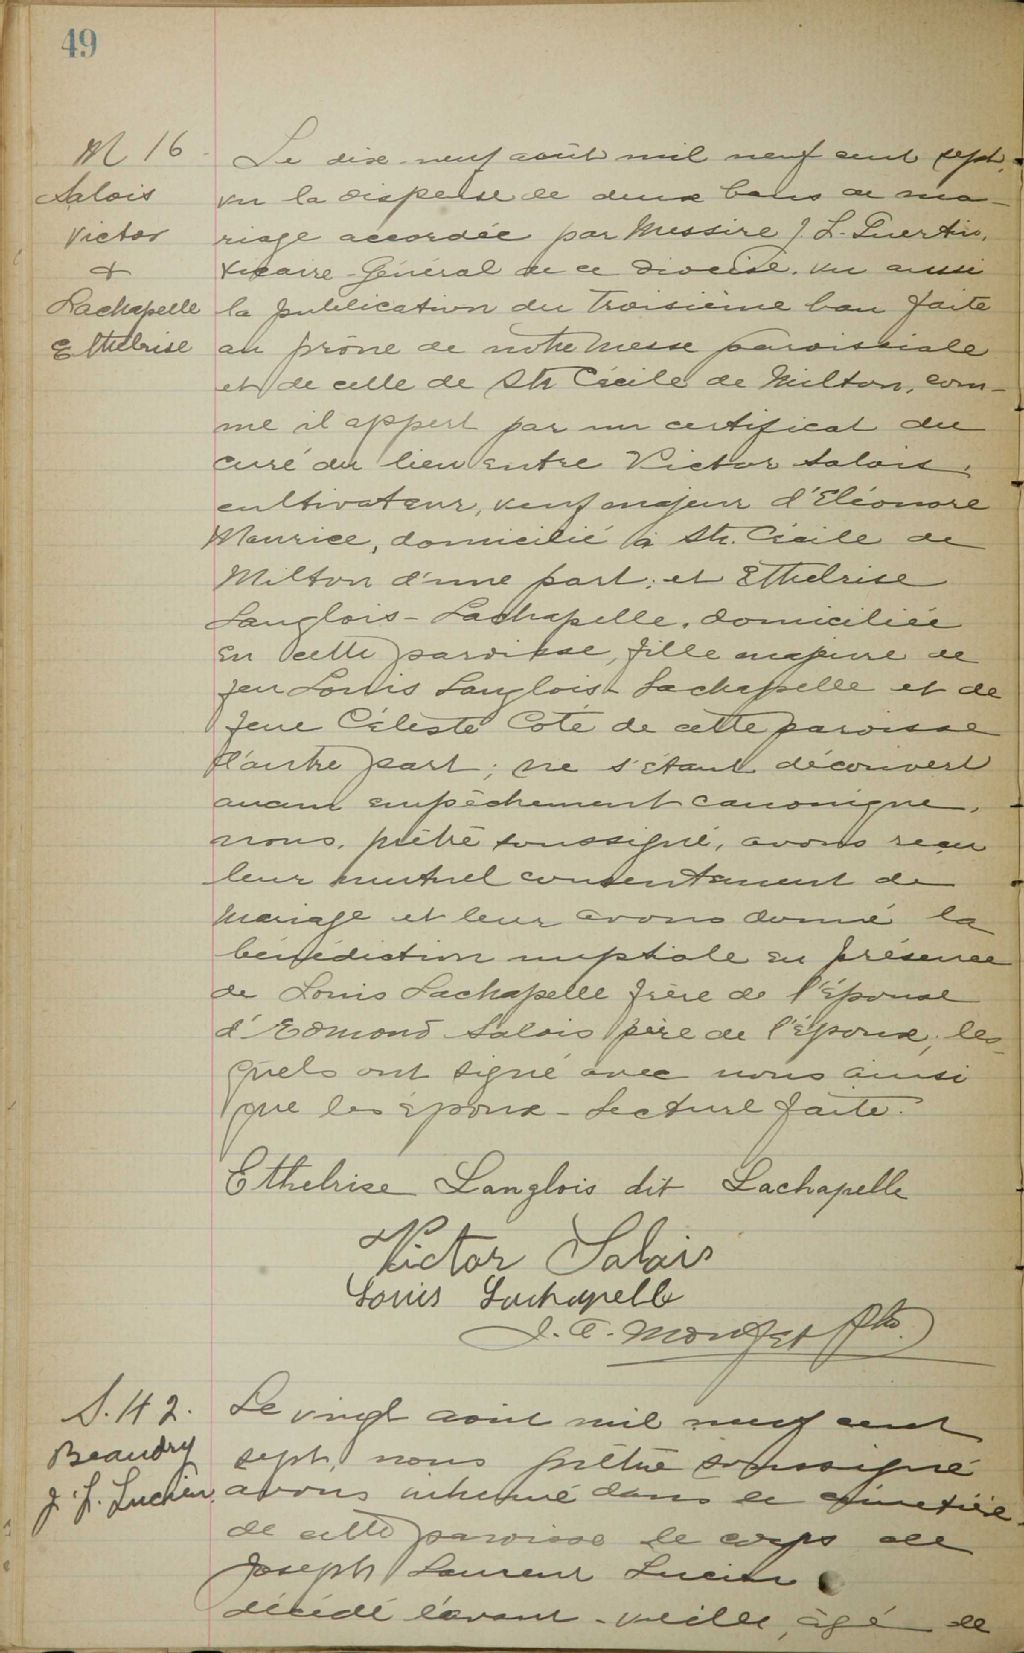 49
M 16
Salois
Victor
&
Lachapelle
Ethelrise
Le dix-neuf août mil neuf cent sept,
vu la dispense de deux bans de ma-
riage accordée par Messire J. L. Guertin,
Vicaire-Général de ce diocèse. vu aussi
la publication du troisième ban faite
au prône de notre Messe paroissiale
et de celle de Ste Cécile de Milton, com-
me il appert par un certificat du
curé du lieu entre Victor Salois,
cultivateur, veuf majeur d'Eléonore
Maurice, domicilié à Ste. Cécile de
Milton d'une part; et Ethelrise
Langlois-Lachapelle, domiciliée
en cette paroisse, fille majeure de
feu Louis Langlois-Lachapelle et de
feue Céleste Coté de cette paroisse
d'autre part; ne s'étant découvert
aucun empêchement canonique,
nous, prêtre soussigné, avons reçu
leur mutuel consentement de
mariage et leur avons donné la
bénédiction nuptiale en présence
de Louis Lachapelle frère de l'épouse
d'Edmond Salois père de l'époux, les-
quels ont signé avec nous ainsi
que les époux - Lecture faite.
Ethelrise Langlois dit Lachapelle
Victor Salois
Louis Lachapelle
J. A. Monfet Ptre.
S. 42.
Beaudry
J. L. Lucien
Le vingt août mil neuf cent
sept, nous prêtre soussigné
avons inhumé dans le cimetière
de cette paroisse le corps de
Joseph Laurent Lucien
décédé l'avant-veille, âgé de